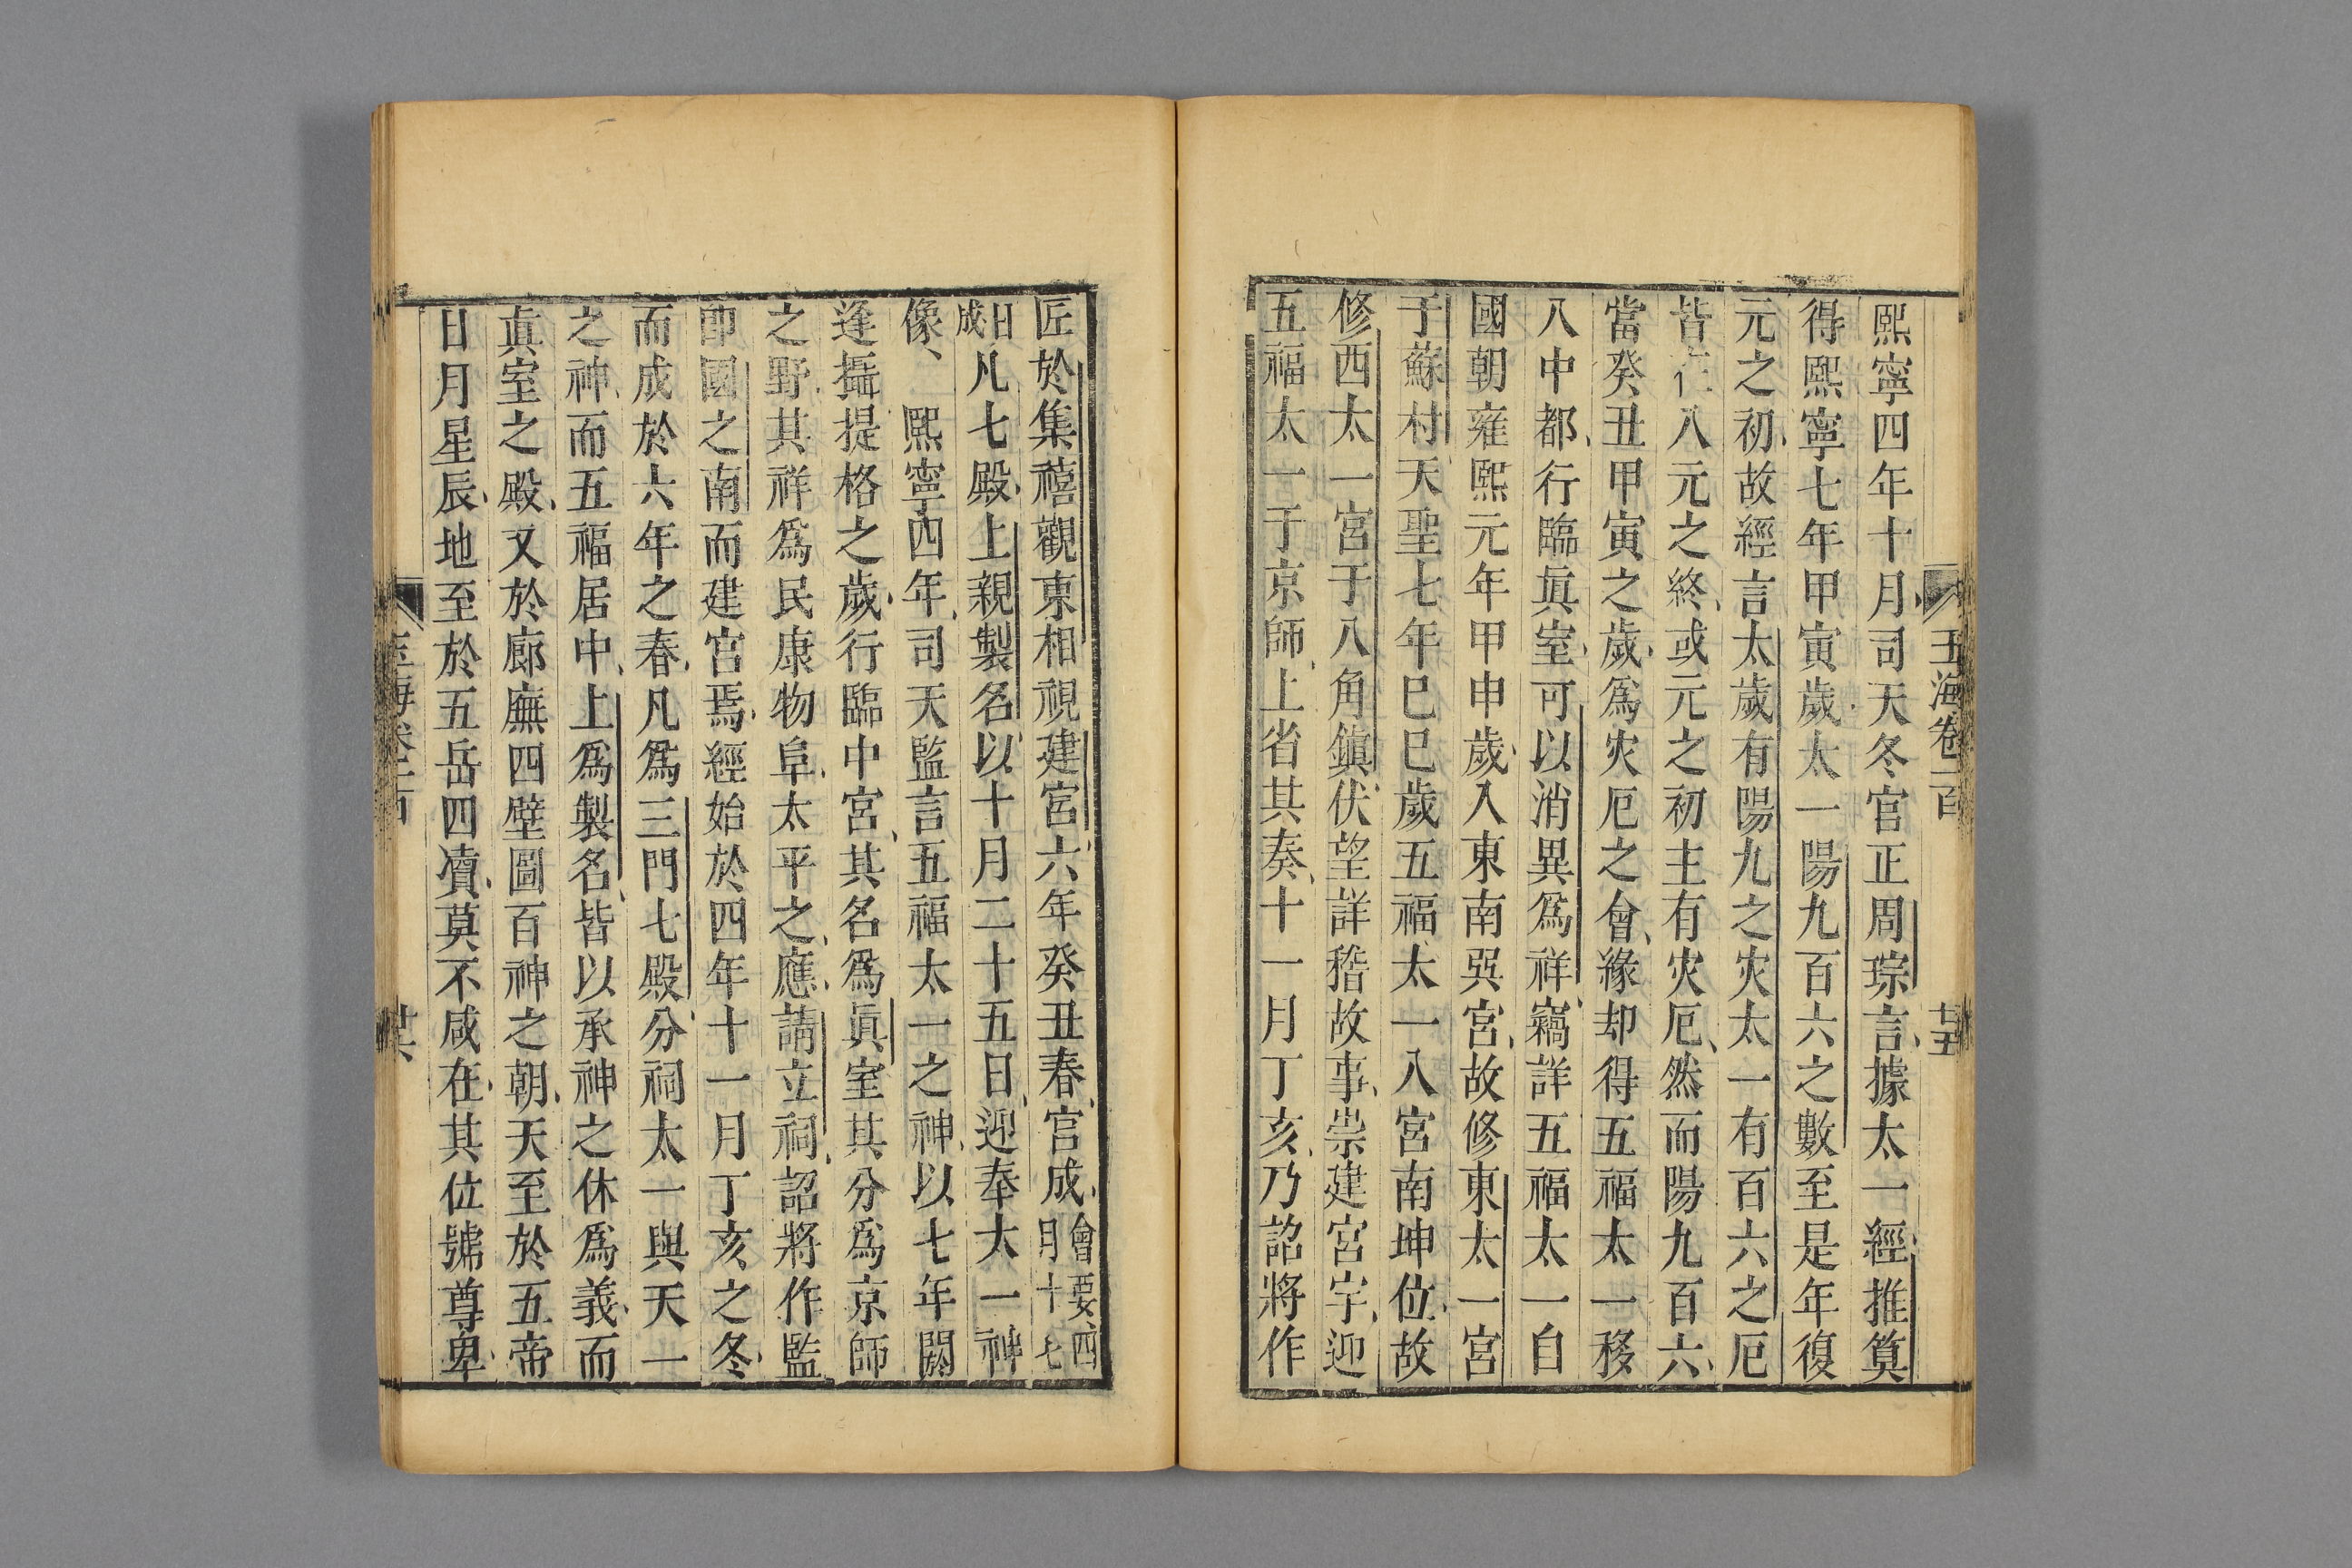 玉海卷一百 廿五
熙寧四年十月司天冬官正周琮言據太一經推筭
得熙寧七年甲寅歲太一陽九百六之數至是年復
元之初故經言太歲有陽九之灾太一有百六之厄
皆在八元之終或元之初主有灾厄然而陽九百六
當癸丑甲寅之歲爲灾厄之會緣却得五福太一移
八中都行臨眞室可以消異爲祥竊詳五福太一自
國朝雍熙元年甲申歲入東南巽宮故修東太一宮
于蘇村天聖七年巳巳歲五福太一入宮南坤位故
修西太一宮于八角鎮伏望詳稽故事崇建宮宇迎
五福太一于京師上省其奏十一月丁亥乃詔將作
匠於集禧觀東相視建宮六年癸丑春宮成會要四
月十七
日成凡七殿上親製名以十月二十五日迎奉太一神
像熙寧四年司天監言五福太一之神以七年閼
逢攝提格之歲行臨中宮其名爲眞室其分爲京師
之野其祥爲民康物阜太平之應請立祠詔將作監
卽國之南而建宮焉經始於四年十一月丁亥之冬
而成於六年之春凡爲三門七殿分祠太一與天一
之神而五福居中上爲製名皆以承神之休爲義而
眞室之殿又於廊廡四壁圖百神之朝天至於五帝
日月星辰地至於五岳四瀆莫不咸在其位號尊卑
玉海卷一百 廿六